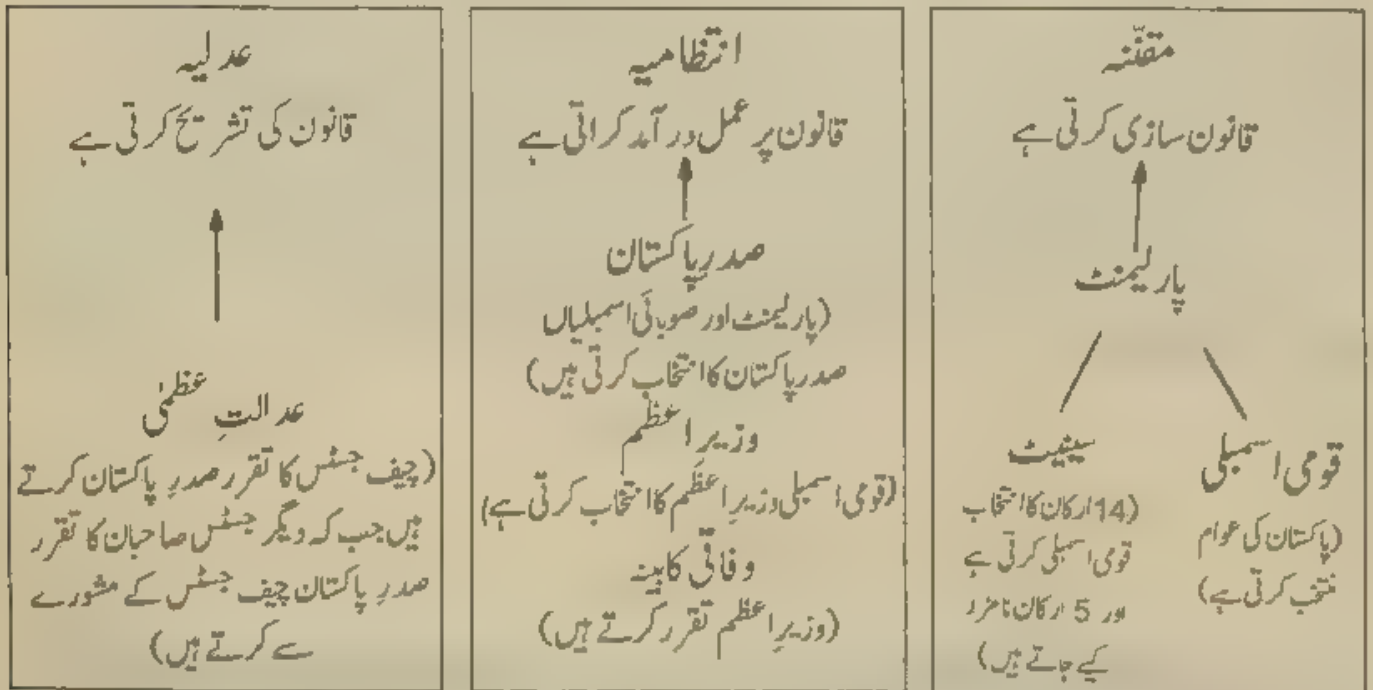 مقنّنہ
قانون سازی کرتی ہے
پارلیمنٹ
قومی اسمبلی
(پاکستان کی عوام
منتخب کرتی ہے)
سینیٹ
(14 ارکان کا انتخاب
قومی اسمبلی کرتی ہے
اور 5 ارکان نامزد
کیے جاتے ہیں)
انتظامیہ
قانون پر عمل در آمد کراتی ہے
صدرِ پاکستان
(پارلیمنٹ اور صوبائی اسمبلیاں
صدر پاکستان کا انتخاب کرتی ہیں)
وزیرِ اعظم
(قومی اسمبلی وزیرِ اعظم کا انتخاب کرتی ہے)
وفاقی کابینہ
(وزیرِ اعظم تقرر کرتے ہیں)
عدلیہ
قانون کی تشریح کرتی ہے
عدالتِ عظمٰی
(چیف جسٹس کا تقرر صدرِ پاکستان کرتے
ہیں جب کہ دیگر جسٹس صاحبان کا تقرر
صدرِ پاکستان چیف جسٹس کے مشورے
سے کرتے ہیں)